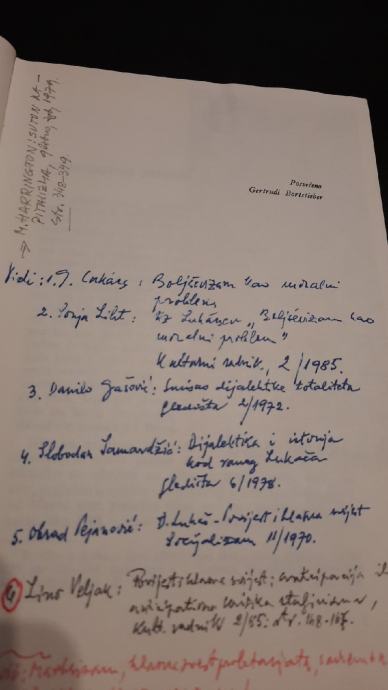 → M. HARRINGTON: SUTON KA-
PITALIZMA, 1979.
str. 348-349
Posvećeno
Gertrudi Bortstieber
Vidi: 1. G. Lukács: Boljševizam kao moralni
problem
2. Sonja Liht: Uz Lukácsev „Boljševizam kao
moralni problem"
Kulturni radnik, 2/1985.
3. Danilo Gašović: Smisao dijalektike totaliteta
Gledišta 2/1972.
4. Slobodan Samardžić: Dijalektika i istorija
kod ranog Lukača
Gledišta 6/1978.
5. Obrad Pejanović: Đ. Lukač - Povijest i klasna svijest
Socijalizam 11/1970.
6 Lino Veljak: Povijest i klasna svijest: anticipacija il
kritika staljinizma,
Kult. radnik 2/85: str. 148-167.
klasna svest proletarijata, savremena